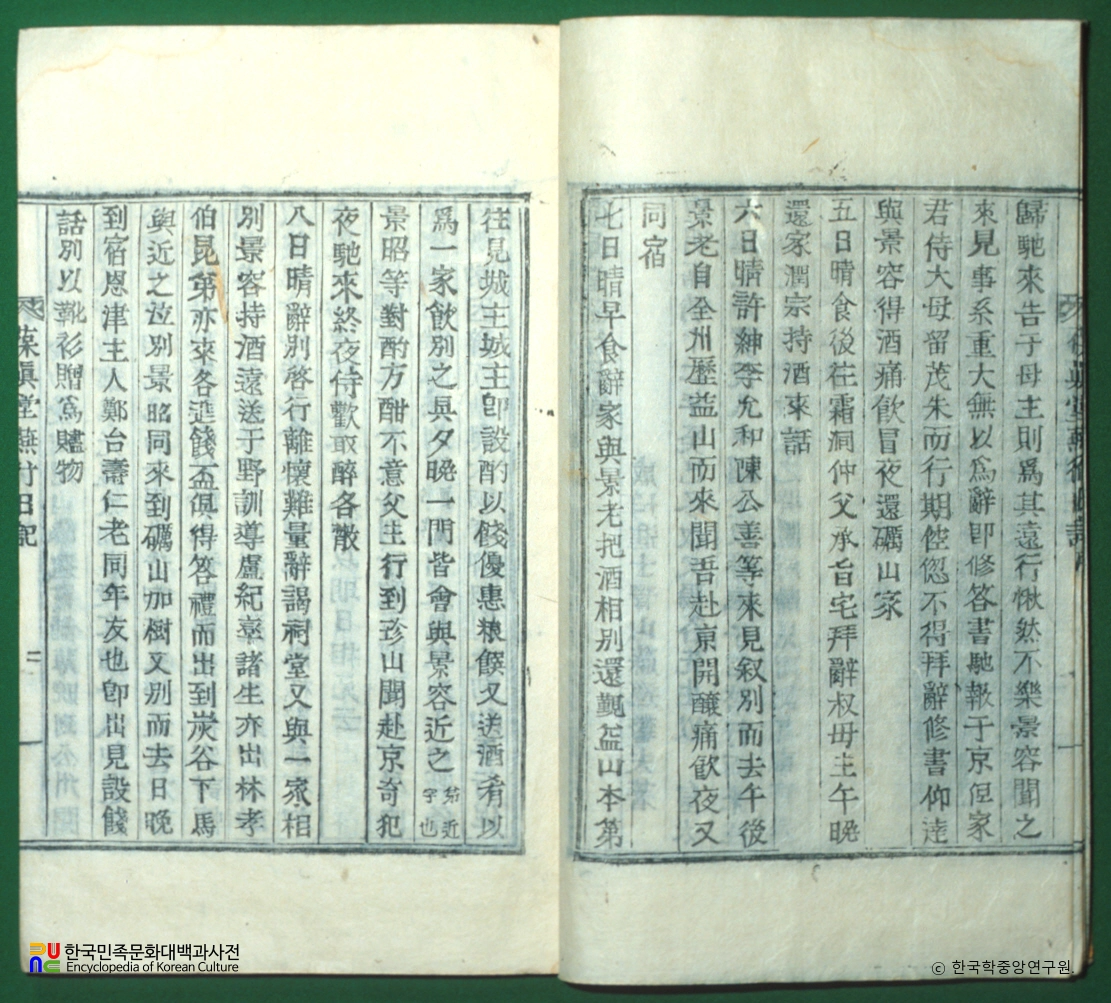 歸馳來告于母主則爲其遠行愀然不樂景容聞之
來見事系重大無以爲辭卽修答書馳報于京但家
君侍大母留茂朱而行期倥偬不得拜辭修書仰達
與景容得酒痛飮冒夜還礪山家
五日晴食後往霜洞仲父承旨宅拜辭叔母主午晩
還家潤宗持酒來話
六日晴許紳李允和陳公善等來見叙別而去午後
景老自全州歷益山而來聞吾赴京開釀痛飮夜又
同宿
七日晴早食辭家與景老把酒相別還覲益山本第
往見城主城主卽設酌以餞優惠粮饌又送酒肴以
爲一家飮別之具夕晩一門皆會與景容近之 茒近字也
景昭等對酌方酣不意父主行到珍山聞赴京奇犯
夜馳來終夜侍歡取醉各散
八日晴辭別啓行離懷難量辭謁祠堂又與一家相
別景容持酒遠送于野訓導盧紀臺諸生亦出林孝
伯昆弟亦來各進餞盃俱得答禮而出到炭谷下馬
與近之泣別景昭同來到礪山加樹又別而去日晩
到宿恩津主人鄭台壽仁老同年友也卽出見設餞
話別以靴衫贈爲贐物
葆眞堂燕行日記
二
한국민족문화대백과사전
Encyclopedia of Korean Culture
© 한국학중앙연구원